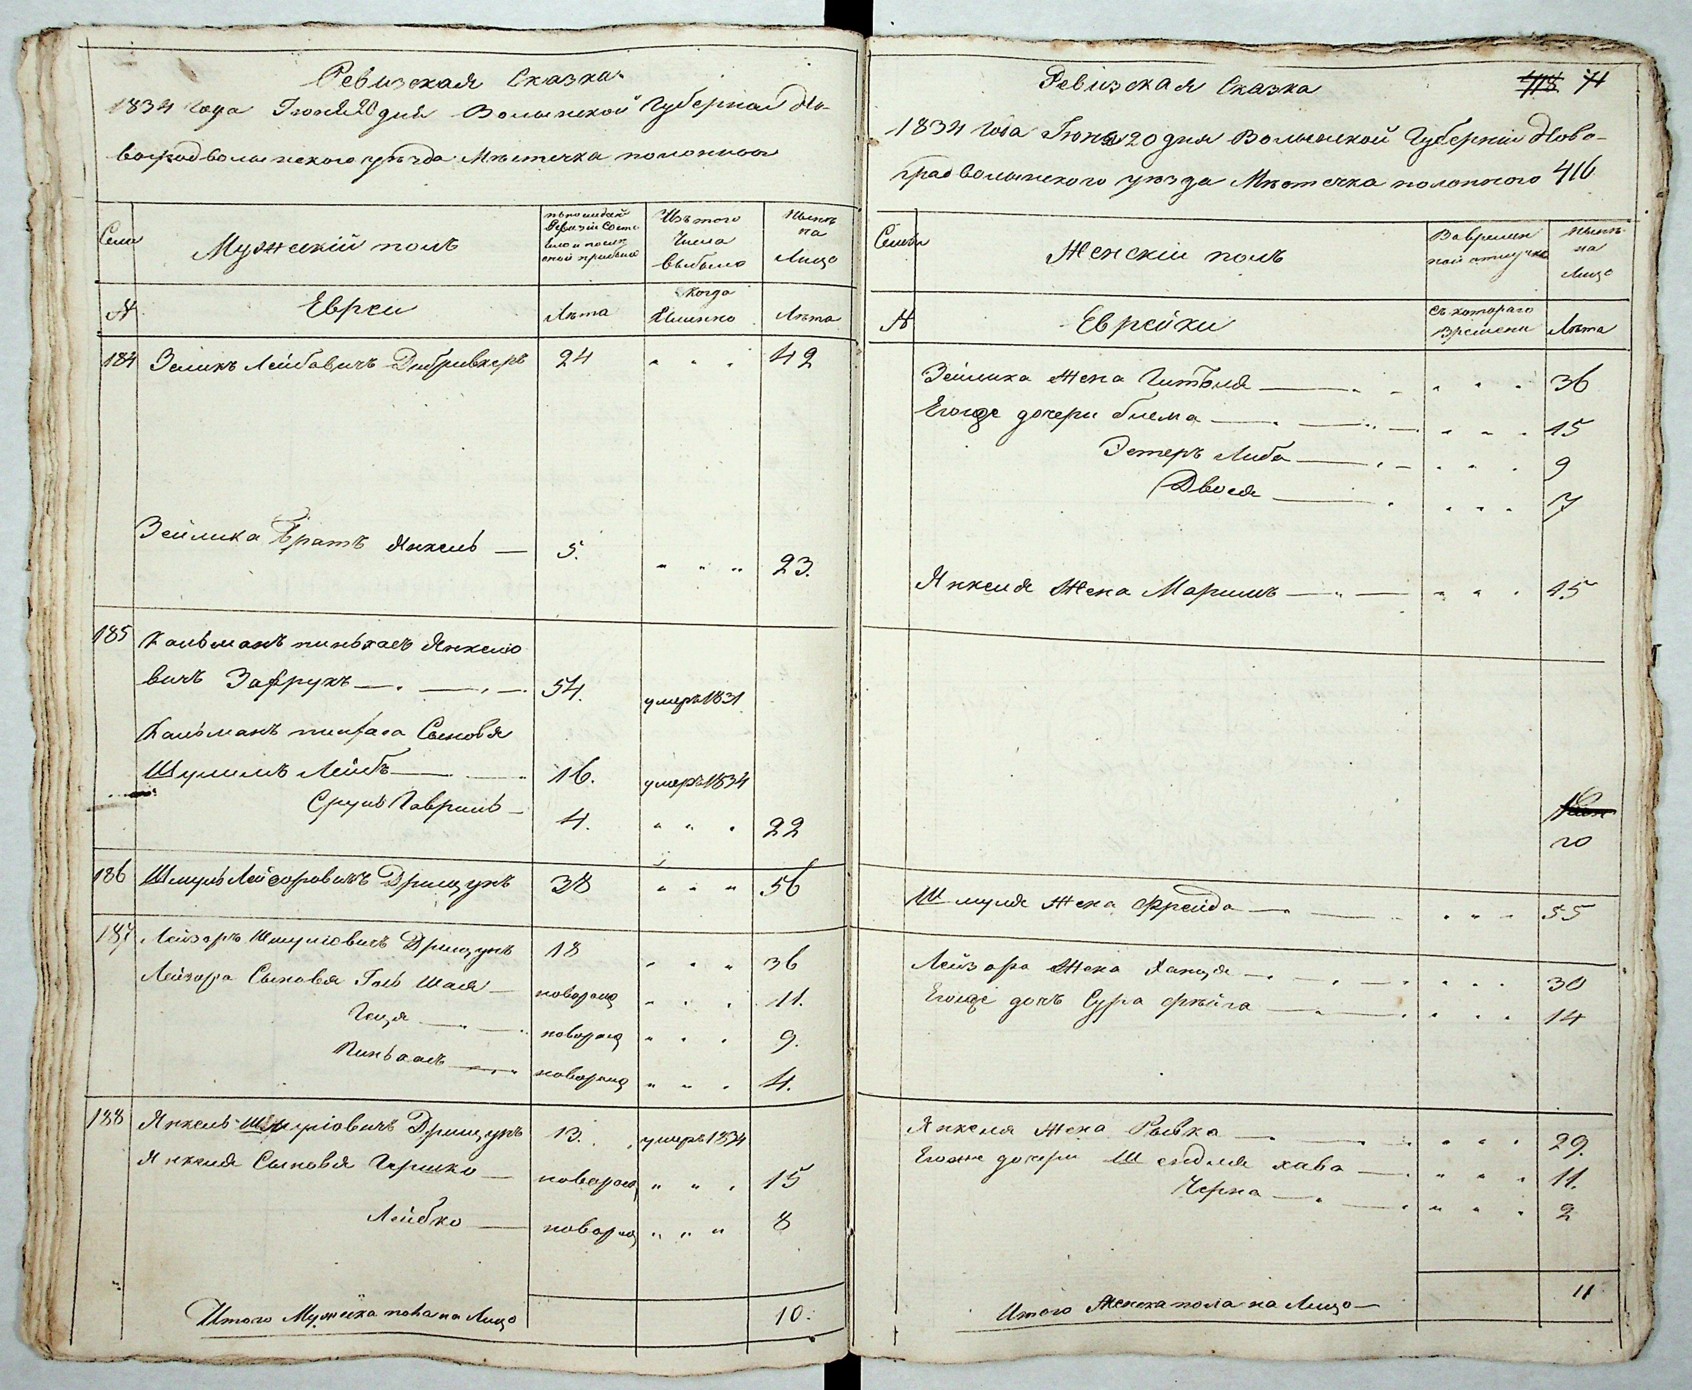 Ревизская Сказка
1834 года Июня 20 дня Волынской Губернии Но-
воградволынского уѣзда Мѣстечка полонного
Семьи
Мужескій полъ
по последней
Ревизіи состо
яло и после
оной прибыло
Изъ того
Числа
выбыло
Нынѣ
на
Лицо
№
Евреи
Лѣта
Когда
Именно
Лѣта
184 Зеликъ Лейбовичъ 24 " " " 42
Зейлика Братъ Янкель — 5. " " " 23.
185 Кальманъ пинхасъ Янкеліо
вичъ — 54. умеръ 1831
Кальманъ пинхаса Сыновья
Шулимъ Лейбъ — 16. умеръ 1834
Сруль Гавриль — 4. " " " 22
186 Шмуль Лейзоровичъ Дрищунъ 38 " " " 56
187 Лейзоръ Шмуліовичъ Дрищунъ 18 " " " 36
Лейзора Сыновья Шая — новорож " " " 11.
Геця — новорож " " " 9.
Пинхасъ — новорож " " " 4.
188 Янкель Шмуліовичъ Дрищунъ 13. умеръ 1834
Янкеля Сыновья Гершко — новорож " " " 15
Лейбко — новорож " " " 8
Итого Мужеска пола на Лицо 10.
Ревизская Сказка
71
1834 года Июня 20 дня Волынской Губерніи Ново-
градволынского уѣзда Мѣстечка полонного 416
Семьи
Женскій полъ
Во времен
ной отлучке
Нынѣ
на
Лицо
№
Еврейки
Съ котораго
времени
Лѣта
Зейлика Жена Гитля — " " " 36
Егоже дочери Блема — " " " 15
Эстеръ Либа — " " " 9
Двося — " " " 7
Янкеля Жена Маримъ — " " " 15
Шмуля Жена Фрейда — " " " 55
Лейзора Жена Ханця — " " " 30
Егоже дочь Сура Фейга — " " " 14
Янкеля Жена Рывка — " " " 29.
Егоже дочери Шейдля хава — " " " 11.
Черна — " " " 2
Итого Женска пола на Лицо — 11